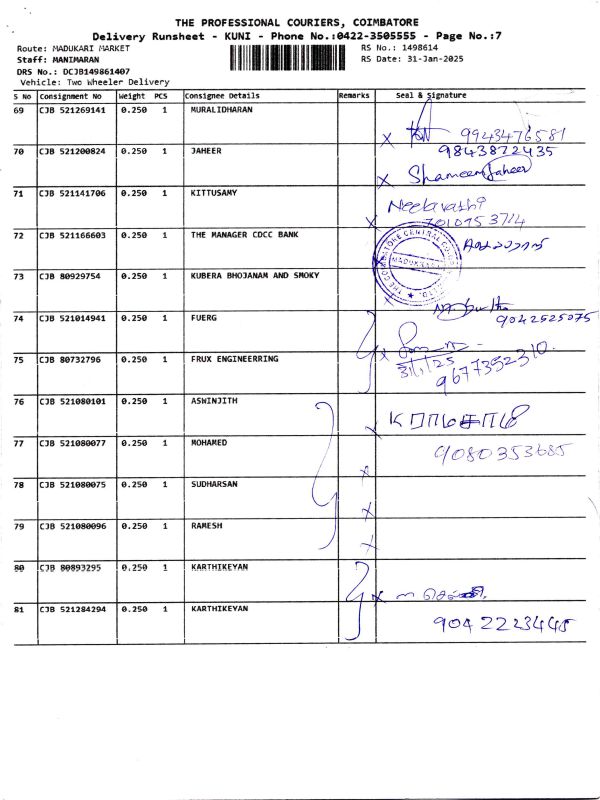 THE PROFESSIONAL COURIERS, COIMBATORE
Delivery Runsheet - KUNI - Phone No.:0422-3505555 - Page No.:7
Route: MADUKARI MARKET
RS No.: 1498614
Staff: MANIMARAN
RS Date: 31-Jan-2025
DRS No.: DCJB149861407
Vehicle: Two Wheeler Delivery
S No Consignment No Weight PCS Consignee Details Remarks Seal & Signature
69 CJB 521269141 0.250 1 MURALIDHARAN
9943476581
70 CJB 521200824 0.250 1 JAHEER
9843872435
Shameem Jaheer
71 CJB 521141706 0.250 1 KITTUSAMY
Neelavathi
7010753714
72 CJB 521166603 0.250 1 THE MANAGER CDCC BANK
73 CJB 80929754 0.250 1 KUBERA BHOJANAM AND SMOKY
74 CJB 521014941 0.250 1 FUERG
9042525075
75 CJB 80732796 0.250 1 FRUX ENGINEERRING
31/1/25
9677352310.
76 CJB 521080101 0.250 1 ASWINJITH
77 CJB 521080077 0.250 1 MOHAMED
9080353685
78 CJB 521080075 0.250 1 SUDHARSAN
79 CJB 521080096 0.250 1 RAMESH
80 CJB 80893295 0.250 1 KARTHIKEYAN
81 CJB 521284294 0.250 1 KARTHIKEYAN
9042223445